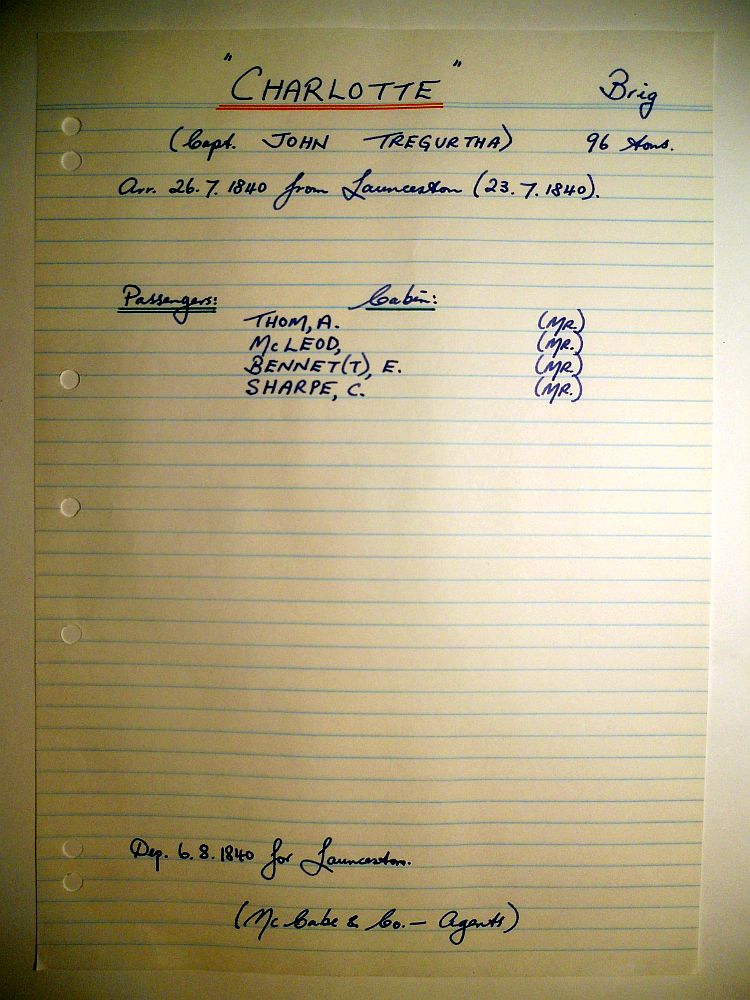 "CHARLOTTE" Brig
(Capt. JOHN TREGURTHA) 96 tons.
Arr. 26.7.1840 from Launceston (23.7.1840).
Passengers: Cabin:
THOM, A. (MR.)
McLEOD, (MR.)
BENNET(T), E. (MR.)
SHARPE, C. (MR.)
Dep. 6.8.1840 for Launceston.
(McCabe & Co. — Agents)